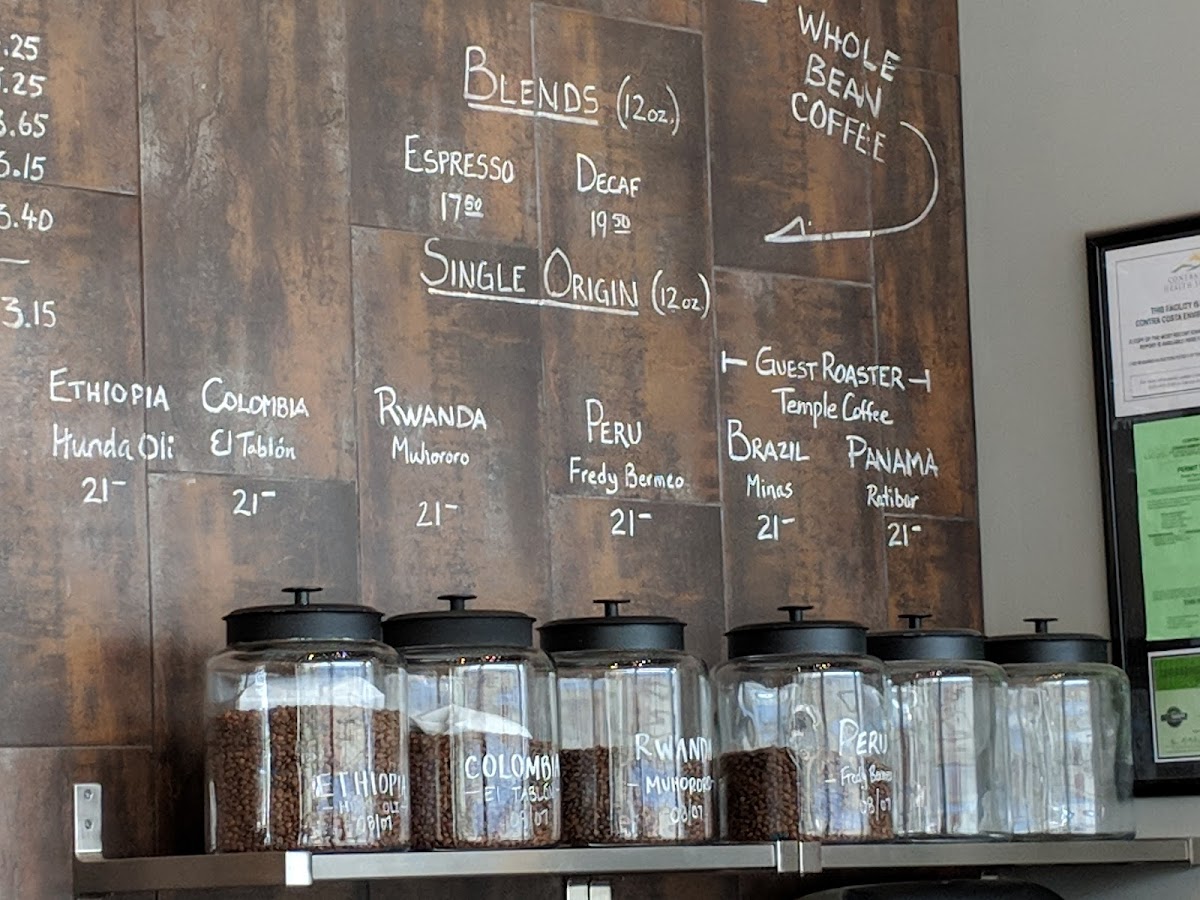 .25
.25
3.65
3.15
3.40
3.15
BLENDS (12oz.)
ESPRESSO
17⁵⁰
DECAF
19⁵⁰
WHOLE
BEAN
COFFEE
SINGLE ORIGIN (12oz)
ETHIOPIA
Hunda Oli
21-
COLOMBIA
El Tablón
21-
RWANDA
Muhororo
21-
PERU
Fredy Bermeo
21-
GUEST ROASTER
Temple Coffee
BRAZIL
Minas
21-
PANAMA
Ratibor
21-
ETHIOPIA
08/07
COLOMBI
- El TABLÓN
08/07
RWANDA
- MUHORORO
08/07
PERU
- Fredy Bermeo
08/07
THIS FACILITY IS
CONTRA COSTA ENVI